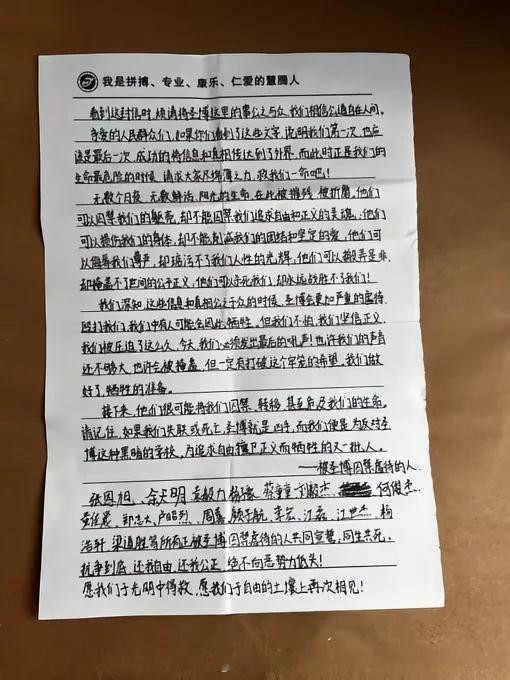 我是拼搏、专业、康乐、仁爱的慧腾人
看到这封信时,烦请将圣博这里的事公之与众,我们相信公道自在人间。
亲爱的人民群众们,如果你们看到了这些文字,说明我们第一次,也应
该是最后一次,成功的将信息和真相传达到了外界,而此时正是我们的
生命最危险的时候,请求大家尽绵薄之力,救我们一命吧!
无数个日夜,无数鲜活、阳光的生命,在此被摧残,被折磨。他们
可以囚禁我们的躯壳,却不能囚禁我们追求自由和正义的灵魂,他们
可以损伤我们的身体,却不能削减我们的团结和坚定的爱,他们可
以侮辱我们尊严,却玷污不了我们人性的光辉,他们可以搬弄是非,
却掩盖不了世间的公平正义,他们可以杀死我们,却永远战胜不了我们!
我们深知,这些信息和真相公之于众的时候,圣博会更加严重的虐待、
殴打我们,我们中有人可能会因此牺牲,但我们不怕,我们坚信正义,
我们被压迫了这么久,今天,我们必须发出最后的吼声!也许我们的声音
还不够大,也许会被掩盖,但一定有打破这个牢笼的希望,我们做
好了牺牲的准备。
接下来,他们很可能将我们囚禁,转移,甚至危及我们的生命。
请记住,如果我们失联或死亡,圣博就是凶手,而我们便是为反对圣
博这种黑暗的学校,为追求自由捍卫正义而牺牲的又一批人。
——被圣博囚禁虐待的人
张因旭、余天明、袁毅力、杨璨、蔡童童、刘毅杰、何俊杰、
郭志大、卢昭烈、周嘉、顾子航、李宏、江磊、江世杰、杨
浩轩、梁通胜等所有正被圣博囚禁虐待的人共同宣誓:同生共死,
抗争到底,还我自由,还我公正,绝不向恶势力低头!
愿我们于光明中得救,愿我们于自由的土壤上再次相见!